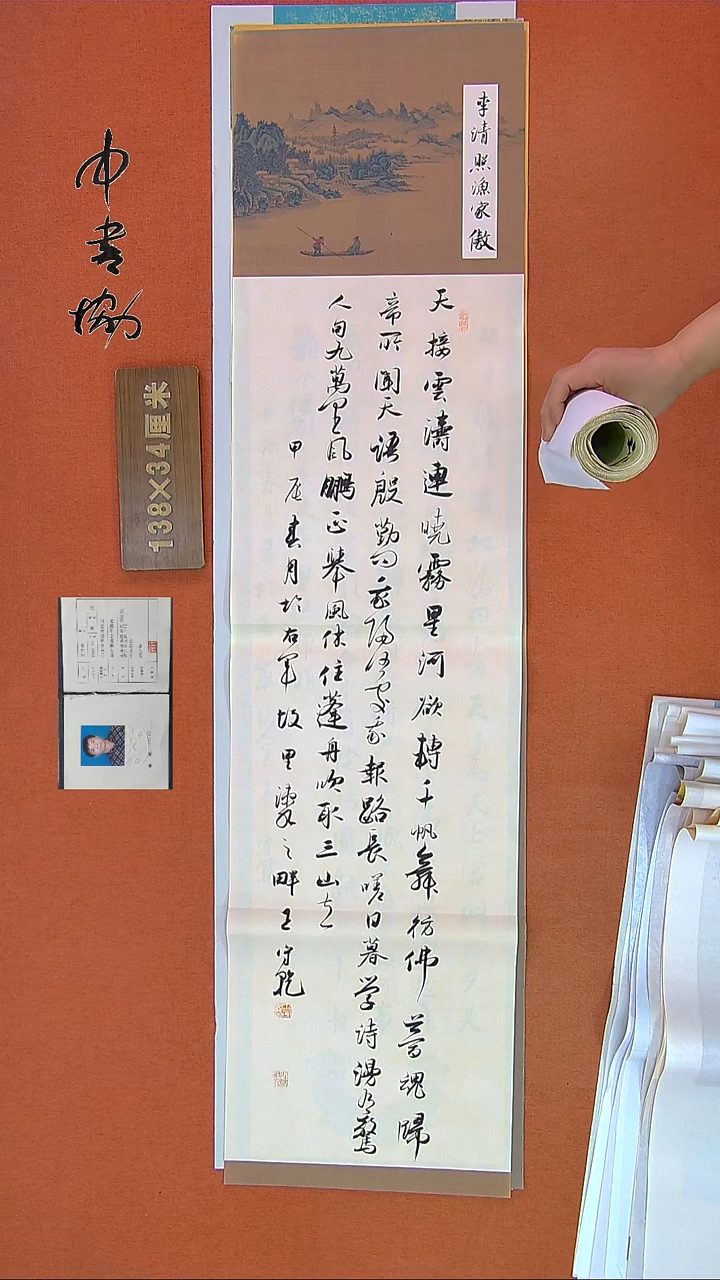 李清照漁家傲
天接雲濤連曉霧星河欲轉千帆舞彷佛夢魂歸
帝所聞天語殷勤問我歸何處我報路長嗟日暮学詩漫有驚
人句九萬里風鵬正舉風休住蓬舟吹取三山去
甲辰春月於右軍故里之畔王守乾
中書協
138×34厘米